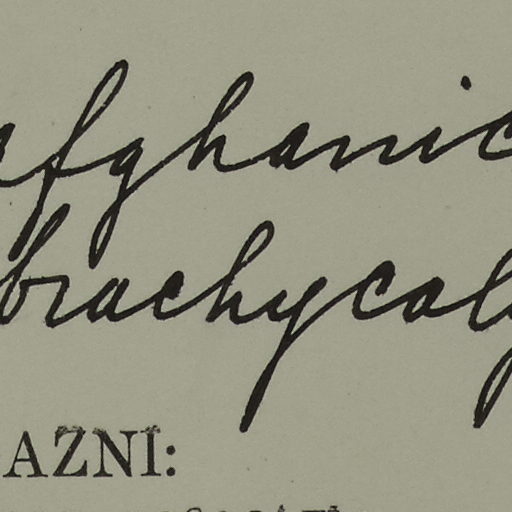 afghanic
brachycal
AZNI: